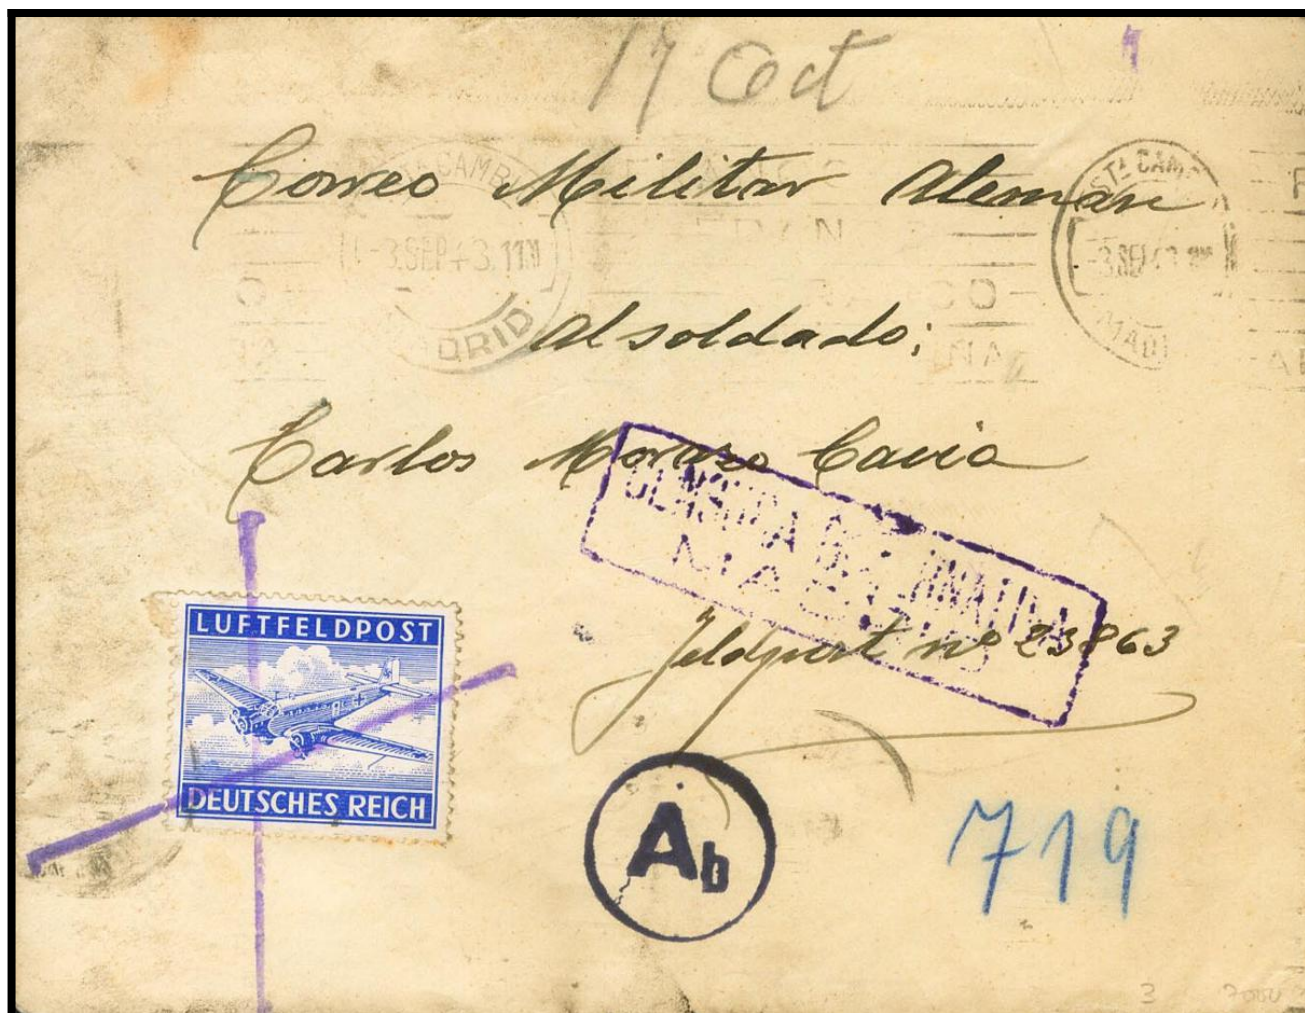 17 Oct
Correo Militar Aleman
-3.SEP43.11M
-3.SEP43
MADRID
Al soldado;
Carlos Morazo Cavia
CENSURA GUBERNATIVA
Feldpost nº 23863
LUFTFELDPOST
DEUTSCHES REICH
Ab
719
3